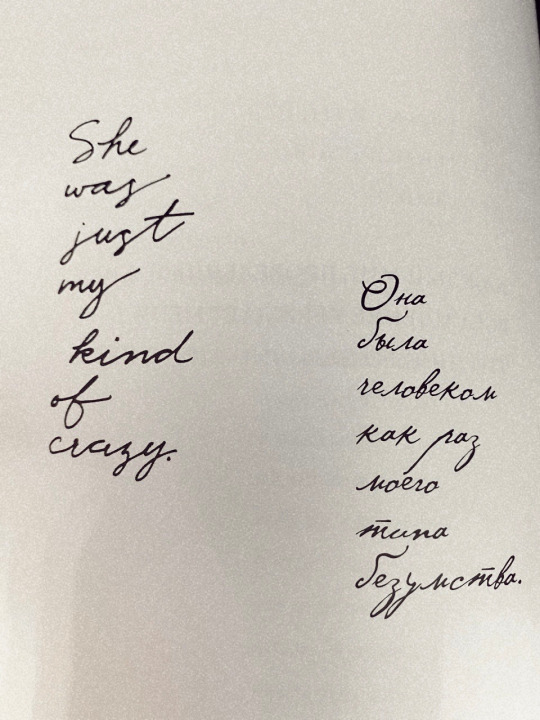 She
was
just
my
kind
of
crazy.
Она
была
человеком
как раз
моего
типа
безумства.